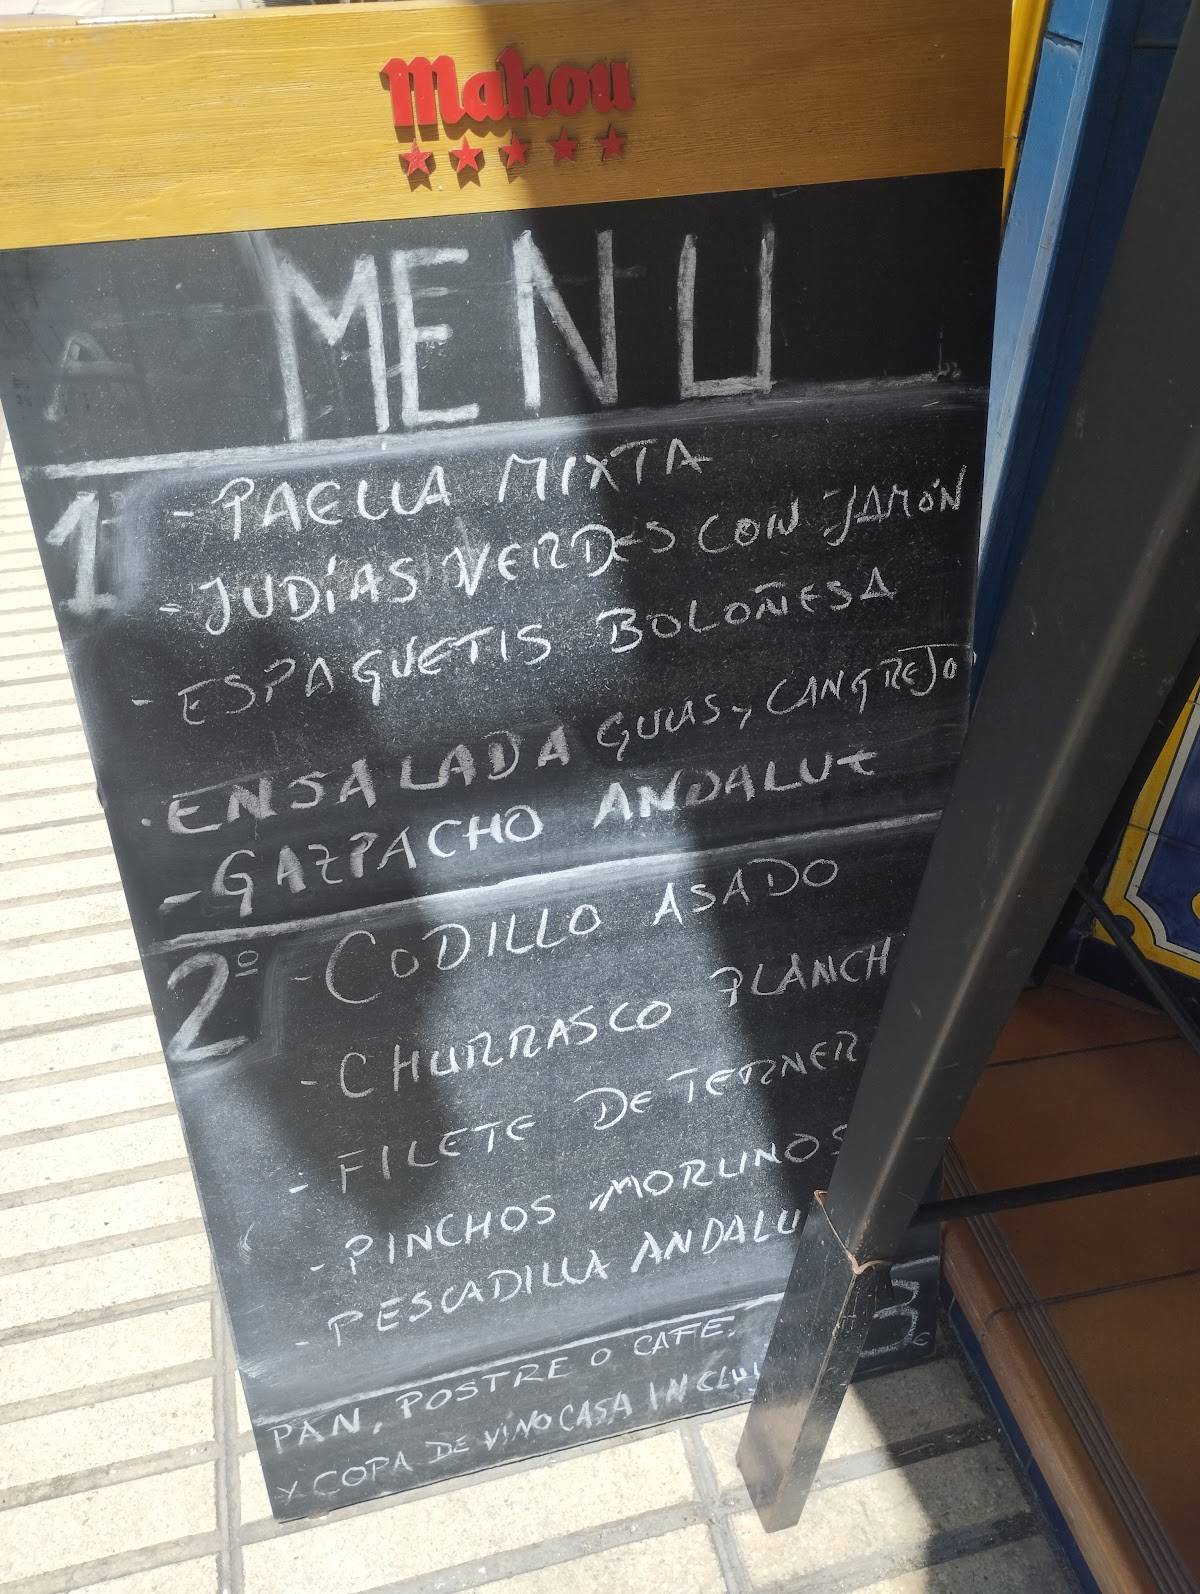 Mahou
MENU
1º
- PAELLA MIXTA
- JUDÍAS VERDES CON JAMÓN
- ESPAGUETIS BOLOÑESA
- ENSALADA GULAS Y CANGREJO
- GAZPACHO ANDALUZ
2º
- CODILLO ASADO
- CHURRASCO PLANCH
- FILETE DE TERNER
- PINCHOS MORUNOS
- PESCADILLA ANDALU
PAN, POSTRE O CAFE.
Y COPA DE VINO CASA INCLUI
3€